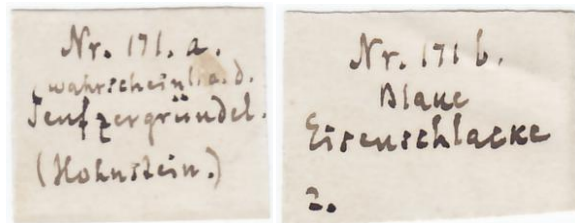 Nr. 171. a.
(wahrscheinl. a. d.
Seufzergründel.
(Hohnstein.)
Nr. 171 b.
Blaue
Eisenschlacke
2.